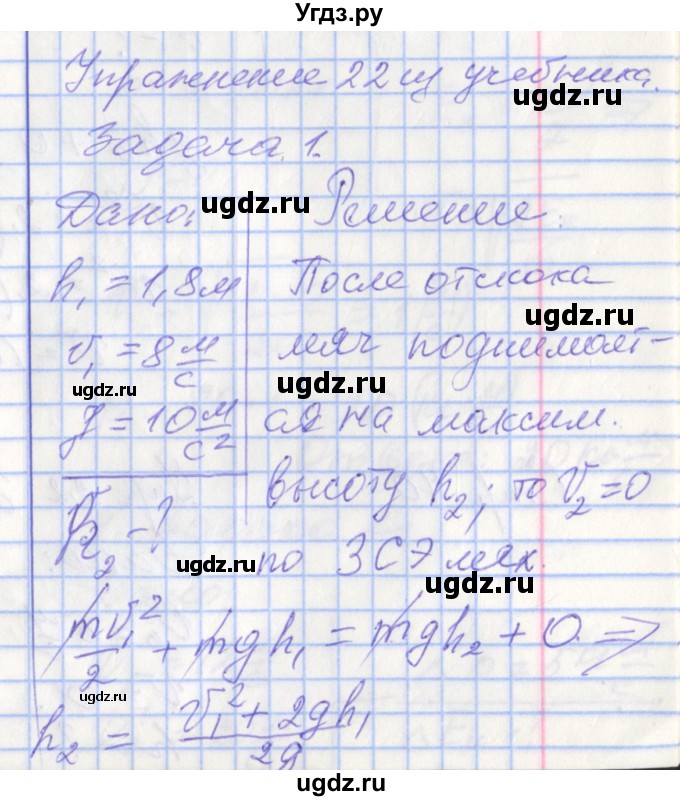 Угдз.ру
Упражнение 22 из учебника.
ugdz.ru
Задача 1.
Дано: Решение:
ugdz.ru
h₁ = 1,8 м После отскока
v₁ = 8 м/с мяч поднимает-
ugdz.ru
g = 10 м/с² ся на максим.
высоту h₂; то v₂ = 0
h₂ - ? по ЗСЭ мех.
ugdz.ru
mv₁²/2 + mgh₁ = mgh₂ + 0 ⇒
ugdz.ru
h₂ = (v₁² + 2gh₁)/2g
ugdz.ru